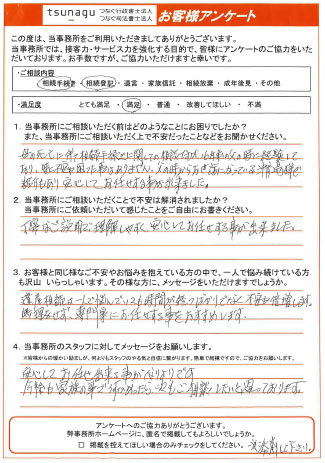 tsunagu つなぐ行政書士法人
つなぐ司法書士法人
お客様アンケート
この度は、当事務所をご利用いただきましてありがとうございます。
当事務所では、接客力・サービス力を強化する目的で、皆様にアンケートのご協力をいた
だいております。お手数ですが、ご協力いただけますと幸いです。
・ご相談内容
相続手続き・相続登記・遺言・家族信託・相続放棄・成年後見・その他
・満足度 とても満足・満足・普通・改善してほしい・不満
1. 当事務所にご相談いただく前はどのようなことにお困りでしたか?
また、当事務所にご相談いただく上で不安だったことなどをお聞かせください。
母の死亡に伴う相続手続き
安心してお任せする事が出来ました。
2. 当事務所にご相談いただくことで不安は解消されましたか?
当事務所にご依頼いただいて感じたことをご自由にお書きください。
丁寧なご説明で理解しやすく、安心してお任せする事が出来ました。
3. お客様と同じ様なご不安やお悩みを抱えている方の中で、一人で悩み続けている方
も沢山いらっしゃいます。その様な方に、メッセージをいただけますでしょうか。
遺産相続は一人で悩んでいても時間が経つばかりでなく不安も倍増します。
専門家にお任せする事をおすすめします。
4. 当事務所のスタッフに対してメッセージをお願いします。
※皆様からの暖かい励ましが、何よりもスタッフのやる気と自信に繋がります。簡単で結構ですので、ご協力をお願いします。
安心してお任せ出来る事が何よりです
今後も家族の事で何かあったら一番にご相談したいと思っております。
アンケートへのご協力ありがとうございます。
弊事務所ホームページに、匿名で掲載してもよろしいでしょうか。
□ 掲載を控えてほしい場合のみチェックをしてください。